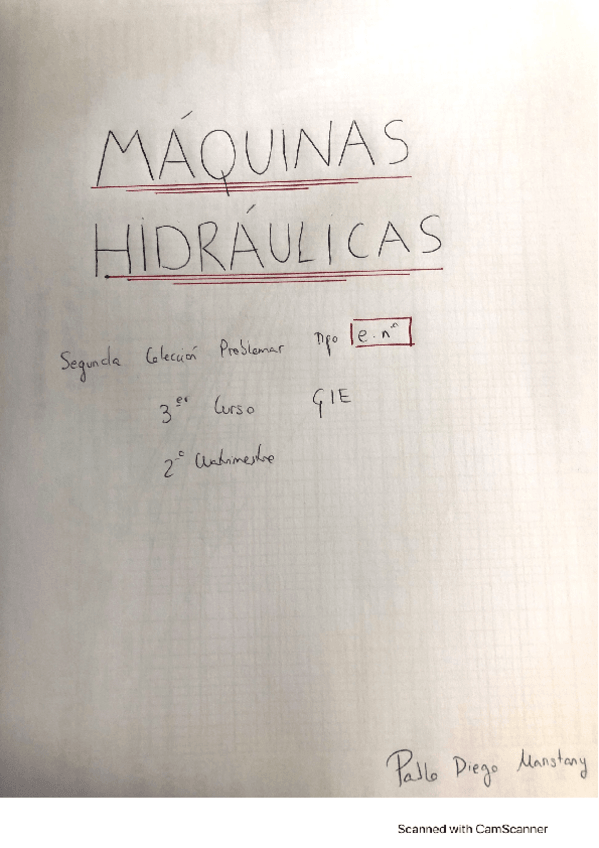 MÁQUINAS
HIDRÁULICAS
Segunda Colección Problemas Tipo e.nº
3er Curso GIE
2º Cuatrimestre
Pablo Diego Manstany
Scanned with CamScanner